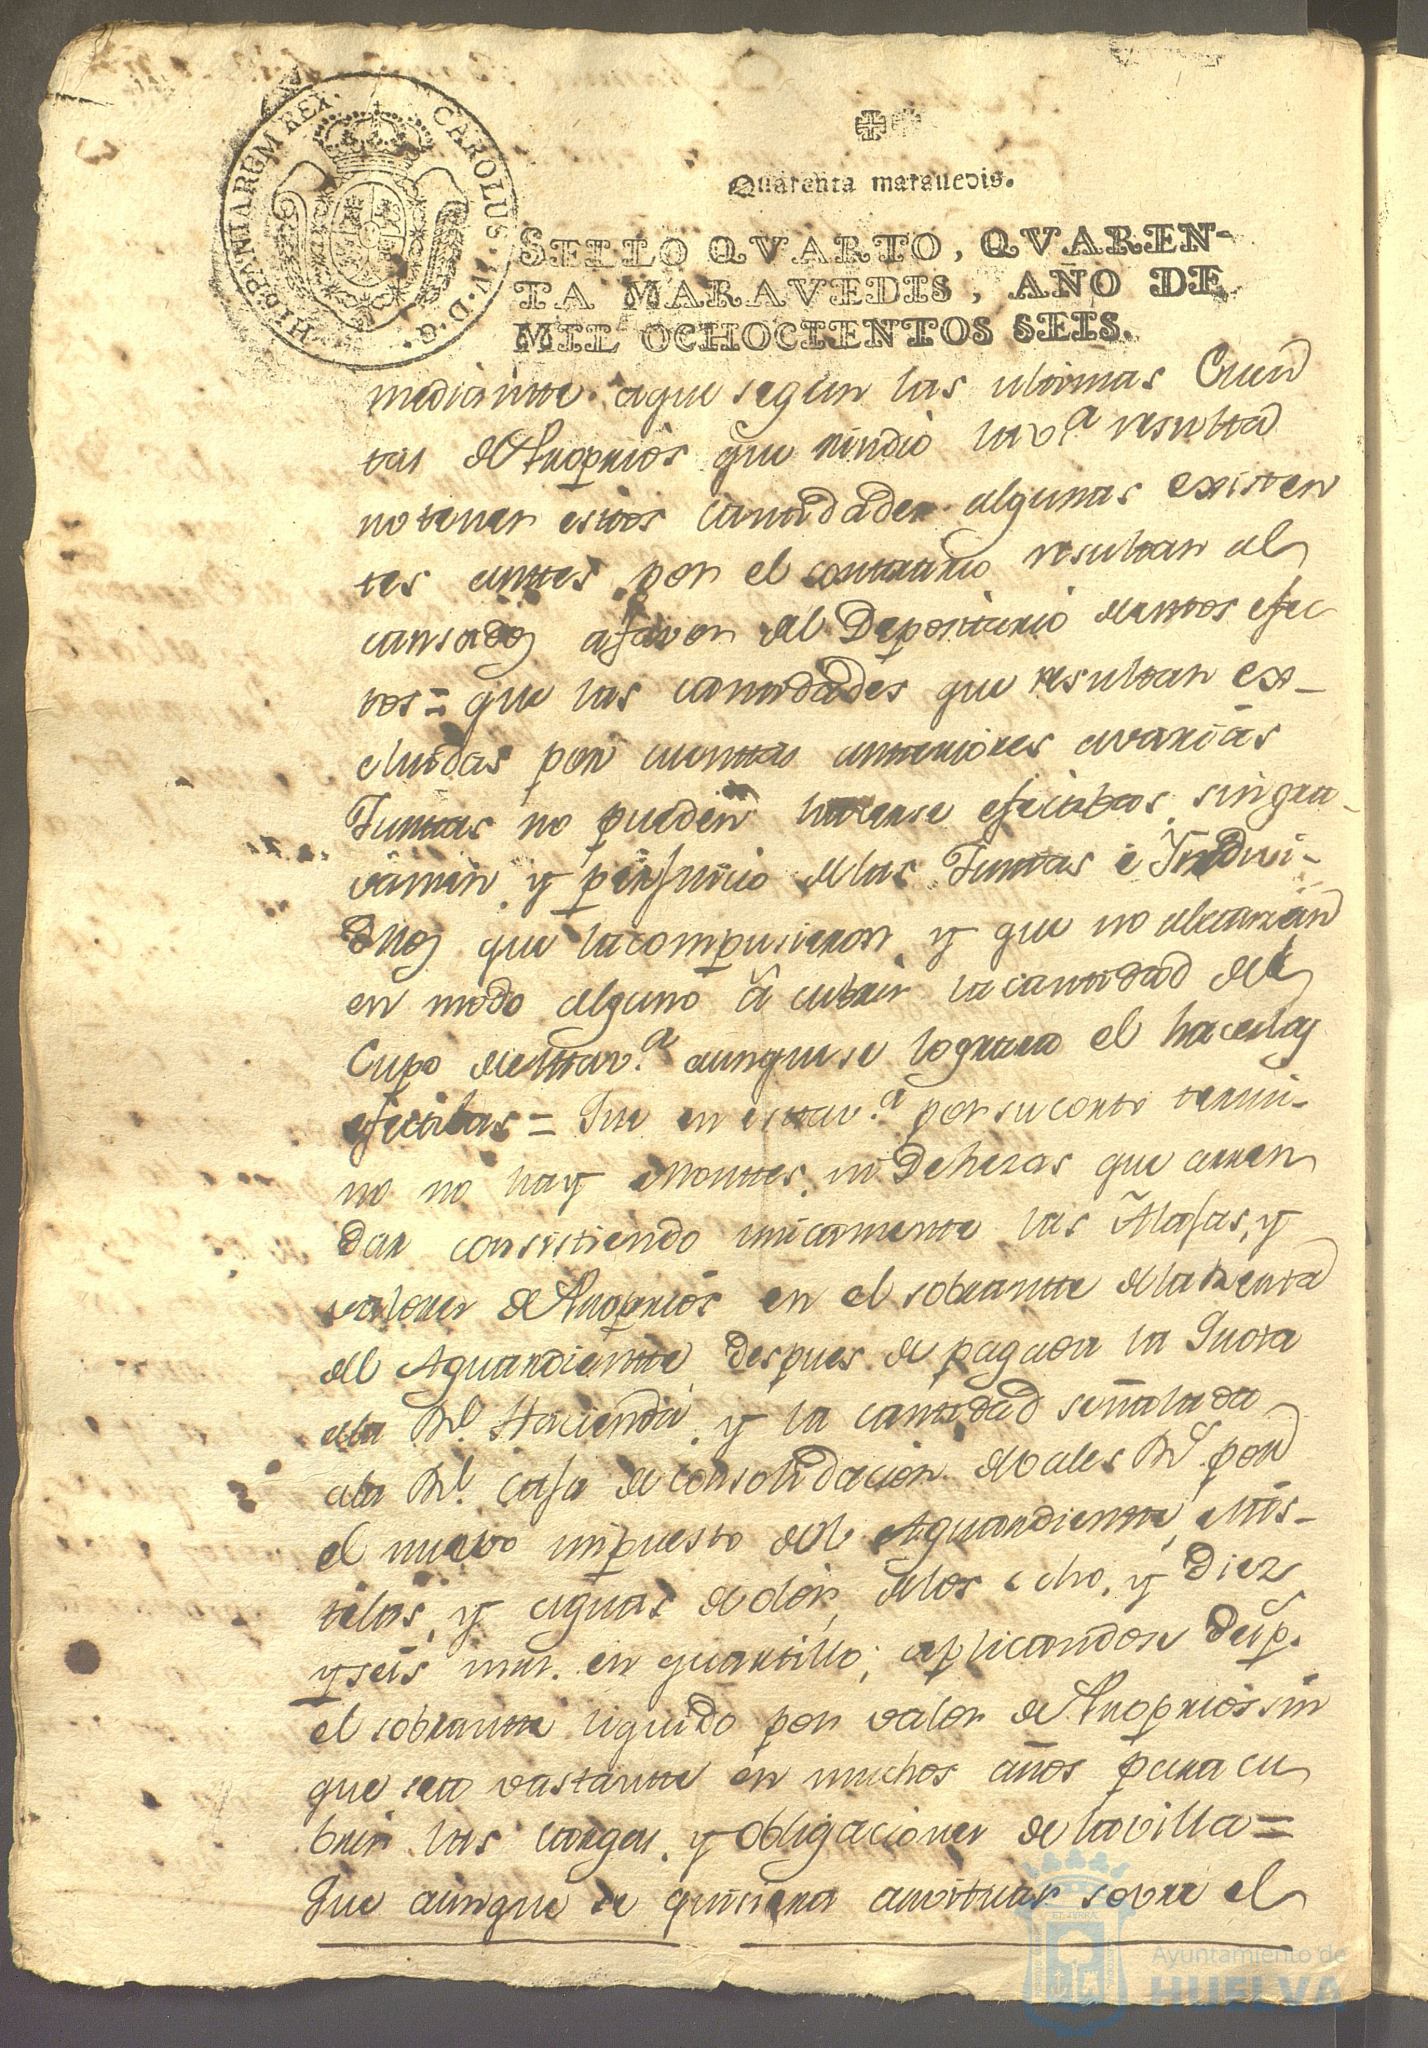 HISPANIARUM REX. CAROLUS. IV. D. G.
Quarenta maravedis.
SELLO QVARTO, QVAREN-
TA MARAVEDIS, AÑO DE
MIL OCHOCIENTOS SEIS.
mediante aque segun las ultimas Cuen
tas de Proprios que rindio lav.ª resulta
no tener estos cantidades algunas existen
tes antes por el contrario resultan al
canzados afavor del Depositario destos efec
tos = que las cantidades que resultan ex-
cluidas por cuentas anteriores avarias
Juntas no pueden hacerse efectibas singra-
vamen y perjuicio delas Juntas é Yndivi-
duos que lacompusieron, y que no alcanzan
en modo alguno á cubrir lacantidad del
Cupo destav.ª aunquese lograra el hacerlas
efectibas = Que en estav.ª por su corto termi-
no no hay Montes, ni Dehesas que arren
dar consistiendo unicamente las Alajas, y
valores de Proprios en el sobrante delarrenta
del Aguardiente despues de pagada la Quota
ala Rl. Hacienda, y la cantidad señalada
ala Rl. Caja de consolidacion devales Rs. por
el nuevo impuesto del Aguardiente, Mis-
telas, y aguas de olor, delos ocho, y Diez
yseis mrs. en quartillo; aplicandose
el sobrante liquido por valor de Proprios sin
que sea vastante en muchos años para cu
brir las cargas, y obligaciones de lavilla =
Que aunque se quisiera arvitrar sovre el
Ayuntamiento de
HUELVA